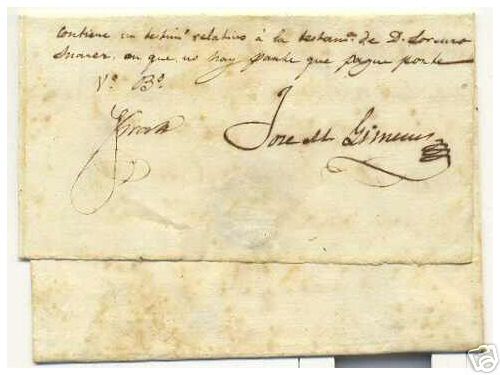 contiene un testim.o relativo à la testam.a de D. Lorenzo
Suarez, en que no hay parte que pague porte
V.o B.o
Jose M. Gimenes